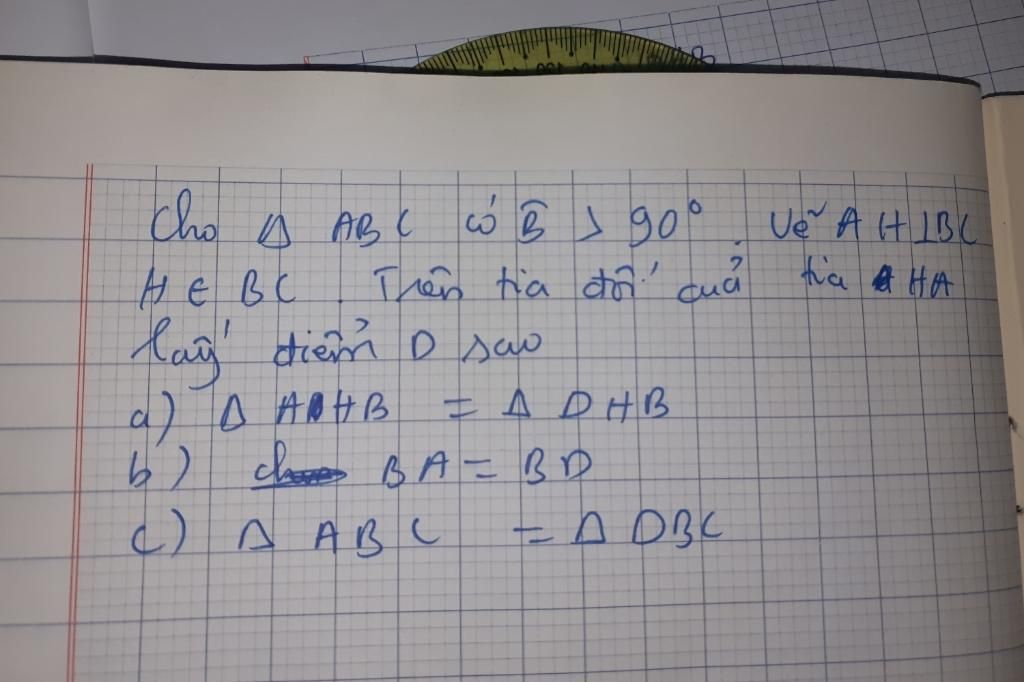 Cho Δ ABC có B̂ > 90°. Vẽ AH⊥BC
H ∈ BC. Trên tia đối cuả tia HA
lấy điểm D sao
a) Δ AHB = Δ DHB
b) BA = BD
c) Δ ABC = Δ DBC